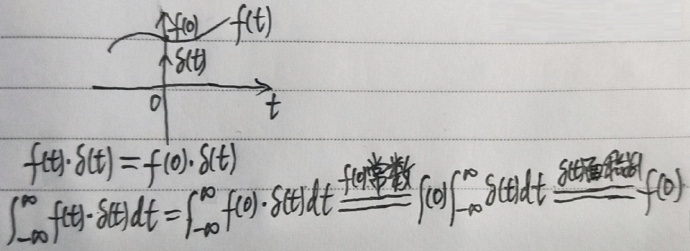 f(0) f(t)
δ(t)
0 t
f(t)·δ(t)=f(0)·δ(t)
∫_{-∞}^{∞} f(t)·δ(t)dt=∫_{-∞}^{∞} f(0)·δ(t)dt \xlongequal{f(0)常数} f(0)∫_{-∞}^{∞} δ(t)dt \xlongequal{δ(t)面积为1} f(0)